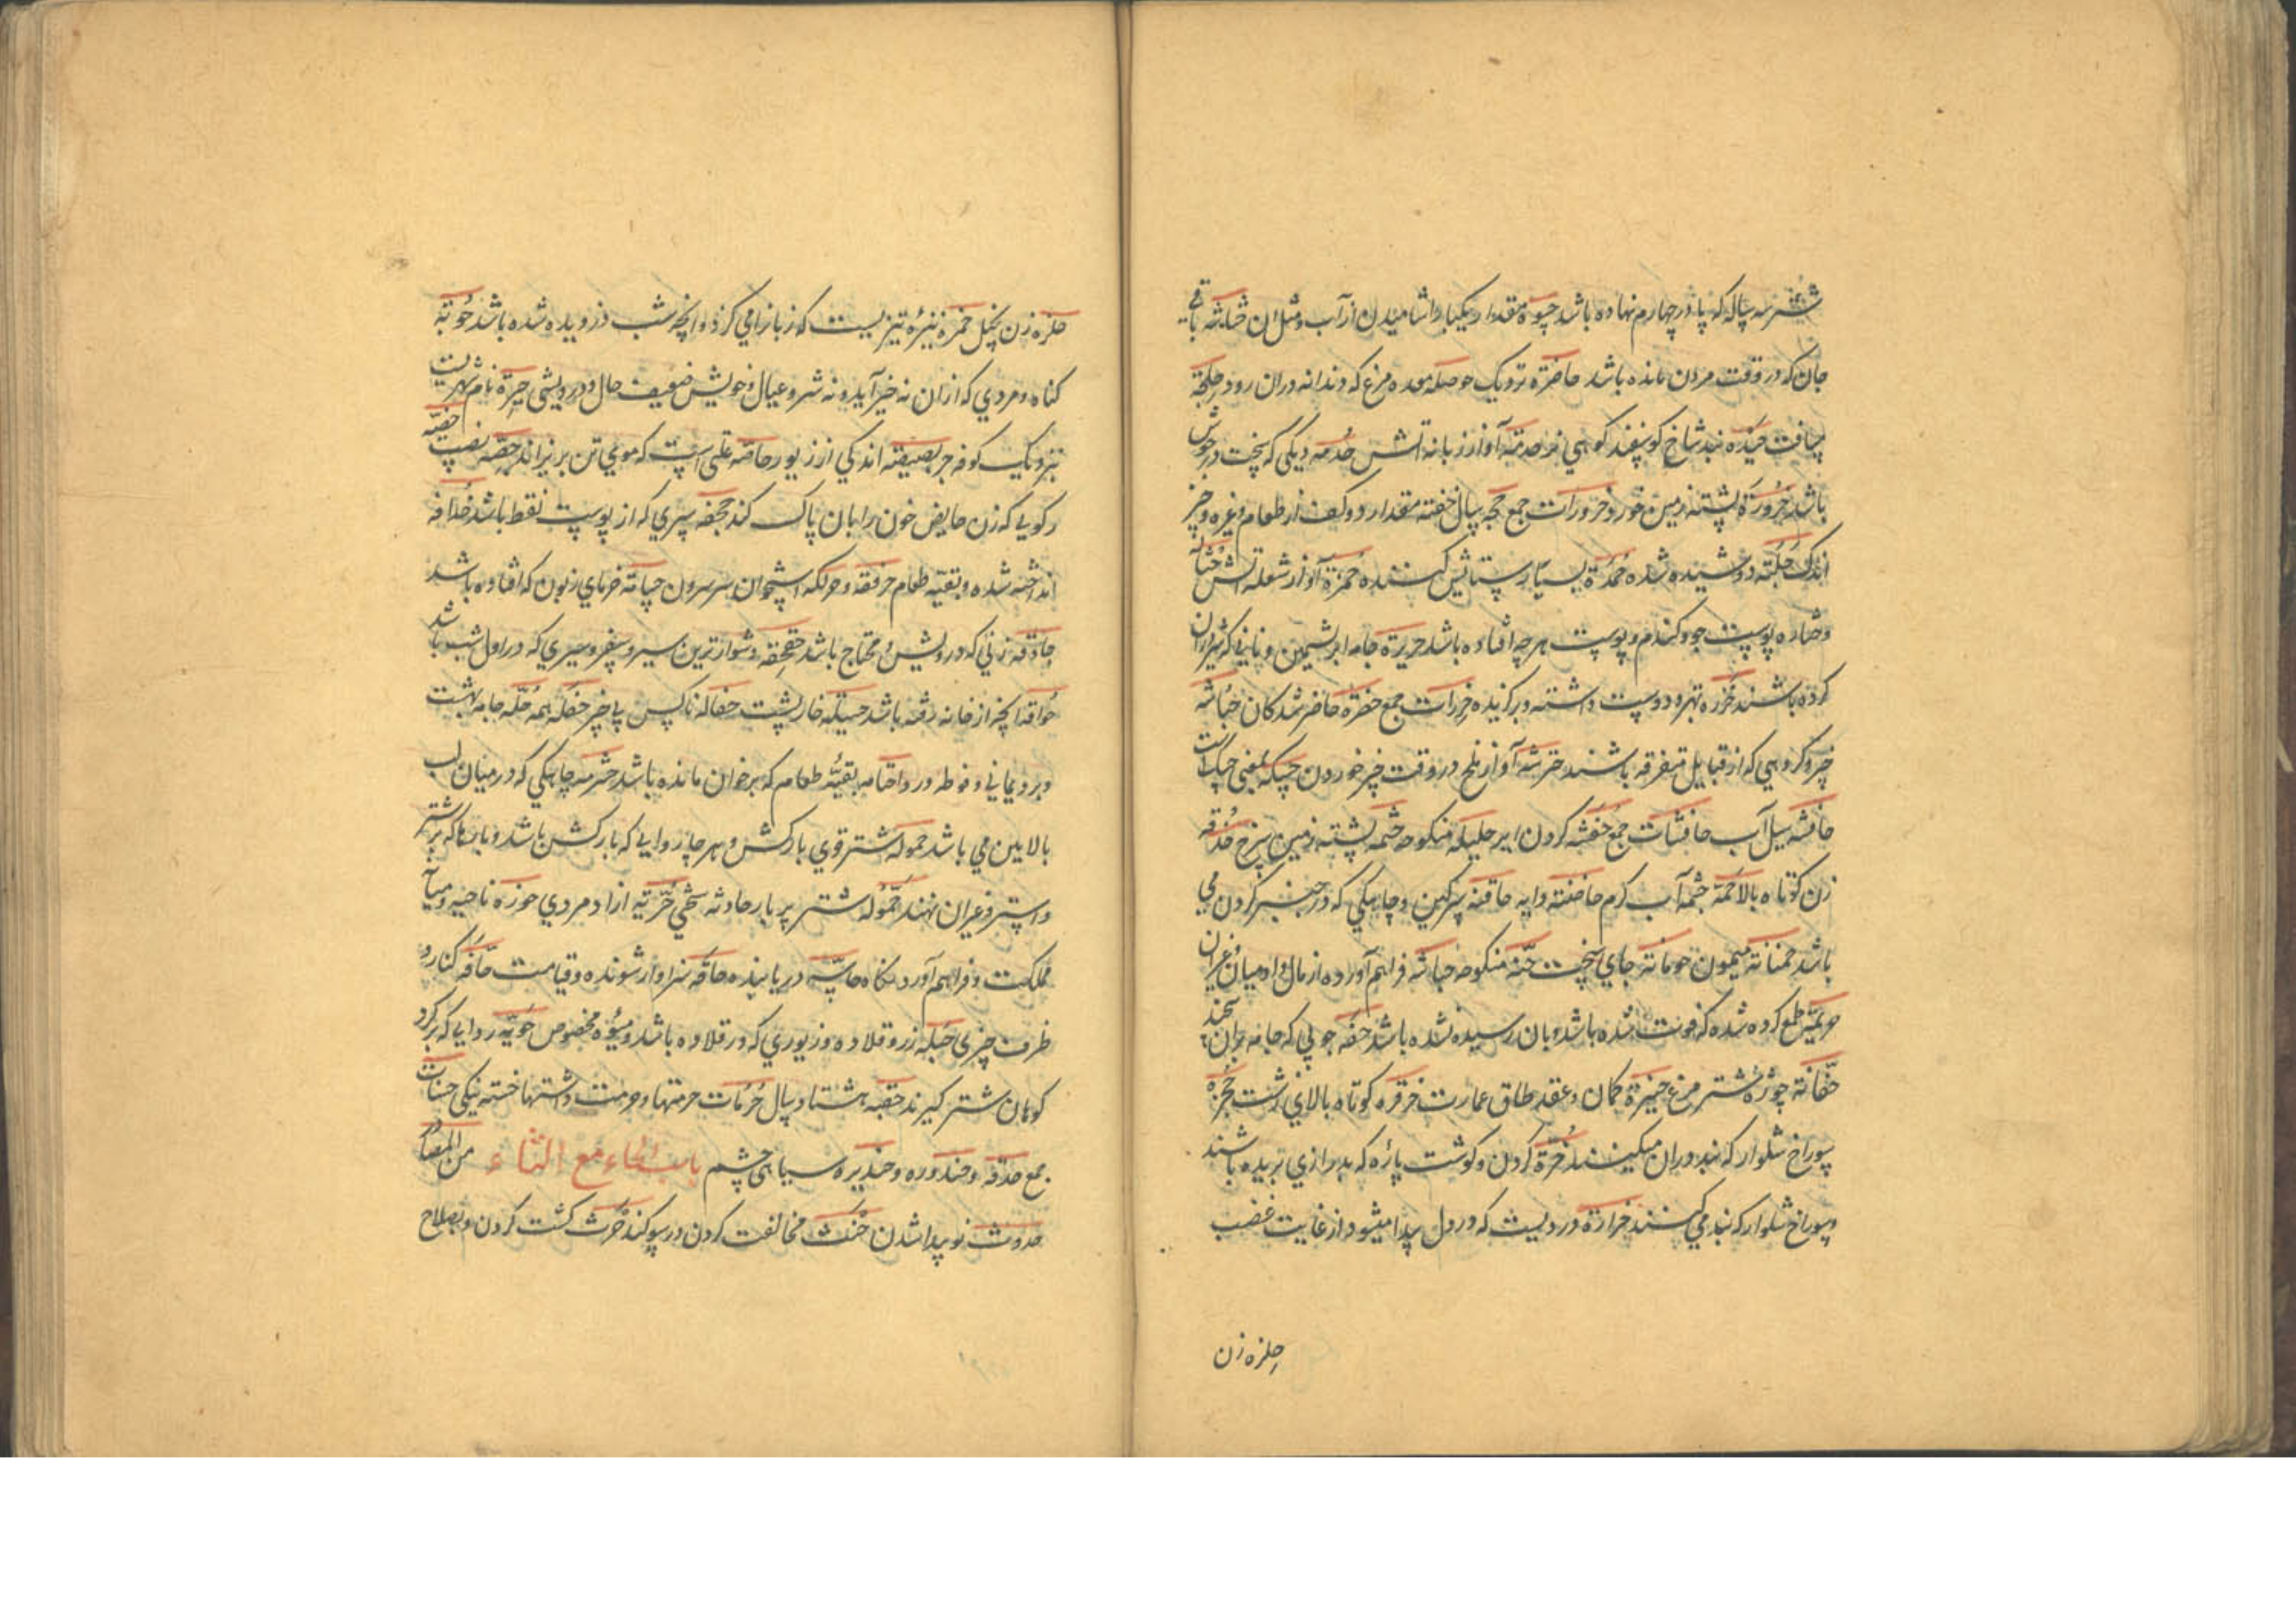 شتر سه ساله که پا در چهارم نهاده باشد حسوة مقدار یکبار اشامیدن از آب و مثل آن حشاشة باقی
جان که در وقت مردن مانده باشد حاضرة نزدیک حوصلة معده مرغ که دندانه دران رود حلجة
مسافت حیدة بند شاخ کوسفند کوهی حدمة آواز زبانه آتش حدمة دیکی که پخت در جوش
باشد حزورة پشته زمین خورد حزورات جمع حجة سال حفنة مقدار دو کف از طعام و غیره و چیز
اندک حلبة دوشیده شده حمدة بسیار ستایش کننده حمزة آواز شعله آتش حثالة
و حثاره پوست جو و کندم و پوست هر چه افتاده باشد حریرة جامه ابریشمین و نانی که شیر دران
کرده باشند حزرة بهره و دوست داشته و برکزیده حزرات جمع حضرة حاضر شدکان حباشة
چیز و کروهی که از قبایل متفرقه باشند حرشة آواز ملخ در وقت چیز خوردن حسکة بمعنی حسک است
حافشة سیل آب حافشات جمع حفشة کردن ابر حلیلة منکوحه حثمة پشته زمین سرخ حذقة
زن کوتاه بالا حمة چشمه آب کرم حاضنة دایه حاقنة سرکین و چاهکی که در جنبر کردن می
باشد حمنانة میمون حومانة جای سخت حنة منکوحه حباشة فراهم آورده از مال و ادمیان و غیران
حریمة طمع کرده شده که فوت شده باشد و بان رسیده نشده باشد حفة چوبی که جامه بران پیچند
حقانة چوزه شتر مرغ حنیزة کمان و عقد طاق عمارت حزقرة کوتاه بالای زشت حجزة
سوراخ شلوار که بند دران میکینند حزة کردن و کوشت پاره که بدرازی بریده باشند
و سوراخ شلوار که بند می کنند حزازة دردیست که در دل پیدا میشود از غایت غضب
حلزه زن
حلزه زن بخیل حمزة تیزیست که زبانرا می کزد و آنچه شب دزدیده شده باشد حوبة
کناه و مردی که ازان نه خیر آید و نه شر و عیال و خویش ضعیف حال و درویشی حیرة نام شهریست
بنزدیک کوفه حربصیصة اندکی از زیور حاصة علتی است که موی تن بریزاند حصة نصیب حیضة
رکویی که زن حایض خون را بان پاک کند حجفة سپری که از پوست فقط باشد حذافة
انداخته شده و بقیه طعام حرقفة و حرککة استخوان سر سرون حساتة خرمای زبون که افتاده باشد
حاذقة زنی که درویش و محتاج باشد حقحقة دشوارترین سیر و سفر و سیری که در اول شب باشد
حواقة آنچه از خانه رفته باشد حسیلة خار پشت حفالة ناکس یا چیز حفلة همه حلة جامه بهشت
و برد یمانی و فوطه و ردا حتامة بقیه طعام که بر خوان مانده باشد حثرمة چاهکی که در میان لب
بالایین می باشد حمولة شتر قوی بارکش و هر چاروایی که بارکش باشد و بارها که بر شتر
و استر و غیران نهند حمولة شتر پر بار حادثة سختی حریة ازاد مردی حوزة ناحیه و میان
مملکت و فراهم آورد نکاه حاسة دریابنده حاقة سزاوار شونده و قیامت حافة کناره و
طرف چیزی حبلة زر و قلاده و زیوری که در قلاده باشد و میوه مخصوص حویة ردایی که بر کرد
کوهان شتر کیرند حقبة هشتاد سال حرمات حرمتها و حرمت داشتها حسنة نیکی حسنات
جمع حدقة و حندورة و حندیرة سیاهی چشم باب الحاء مع الثاء من المصادر
حدوث نو پیدا شدن حنث مخالفت کردن در سوکند حرث کشت کردن و بصلاح